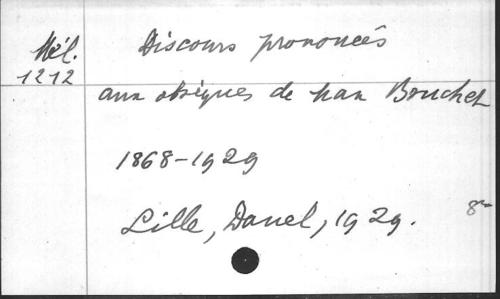 Mél.
1212
Discours prononcés
aux obsèques de Max Bruchet
1868-1929
Lille, Danel, 1929.
8°